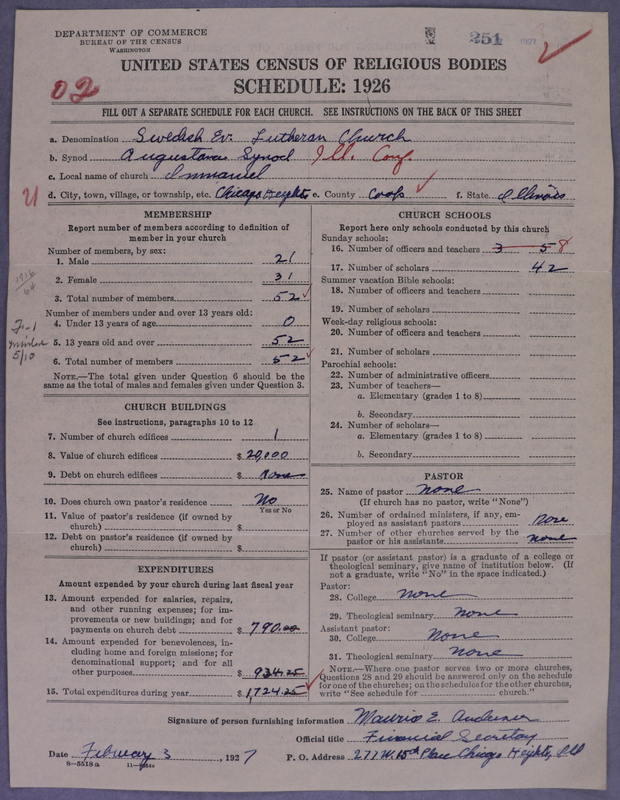 DEPARTMENT OF COMMERCE
BUREAU OF THE CENSUS
WASHINGTON
251 1927
02
UNITED STATES CENSUS OF RELIGIOUS BODIES
SCHEDULE: 1926
FILL OUT A SEPARATE SCHEDULE FOR EACH CHURCH. SEE INSTRUCTIONS ON THE BACK OF THIS SHEET
a. Denomination Swedish Ev. Lutheran Church
b. Synod Augustana Synod Ill. Conf.
c. Local name of church Immanuel
d. City, town, village, or township, etc. Chicago Heights e. County Cook f. State Illinois
MEMBERSHIP
Report number of members according to definition of member in your church
Number of members, by sex:
1. Male 21
2. Female 31
3. Total number of members 52
Number of members under and over 13 years old:
4. Under 13 years of age 0
5. 13 years old and over 52
6. Total number of members 52
NOTE.—The total given under Question 6 should be the same as the total of males and females given under Question 3.
CHURCH BUILDINGS
See instructions, paragraphs 10 to 12
7. Number of church edifices 1
8. Value of church edifices $ 20,000
9. Debt on church edifices $ None
10. Does church own pastor's residence No
Yes or No
11. Value of pastor's residence (if owned by church) $
12. Debt on pastor's residence (if owned by church) $
EXPENDITURES
Amount expended by your church during last fiscal year
13. Amount expended for salaries, repairs, and other running expenses; for improvements or new buildings; and for payments on church debt $ 790.00
14. Amount expended for benevolences, including home and foreign missions; for denominational support; and for all other purposes $ 934.25
15. Total expenditures during year $ 1,724.25
CHURCH SCHOOLS
Report here only schools conducted by this church
Sunday schools:
16. Number of officers and teachers 3 5 8
17. Number of scholars 42
Summer vacation Bible schools:
18. Number of officers and teachers
19. Number of scholars
Week-day religious schools:
20. Number of officers and teachers
21. Number of scholars
Parochial schools:
22. Number of administrative officers
23. Number of teachers—
a. Elementary (grades 1 to 8)
b. Secondary
24. Number of scholars—
a. Elementary (grades 1 to 8)
b. Secondary
PASTOR
25. Name of pastor none
(If church has no pastor, write "None")
26. Number of ordained ministers, if any, employed as assistant pastors None
27. Number of other churches served by the pastor or his assistants none
If pastor (or assistant pastor) is a graduate of a college or theological seminary, give name of institution below. (If not a graduate, write "No" in the space indicated.)
Pastor:
28. College None
29. Theological seminary None
Assistant pastor:
30. College None
31. Theological seminary None
NOTE.—Where one pastor serves two or more churches, Questions 28 and 29 should be answered only on the schedule for one of the churches; on the schedules for the other churches, write "See schedule for church."
Signature of person furnishing information Maurice E.
Official title Financial Secretary
Date February 3, 1927 P. O. Address 277 W. 15th Place Chicago Heights, Ill
8—5518 a